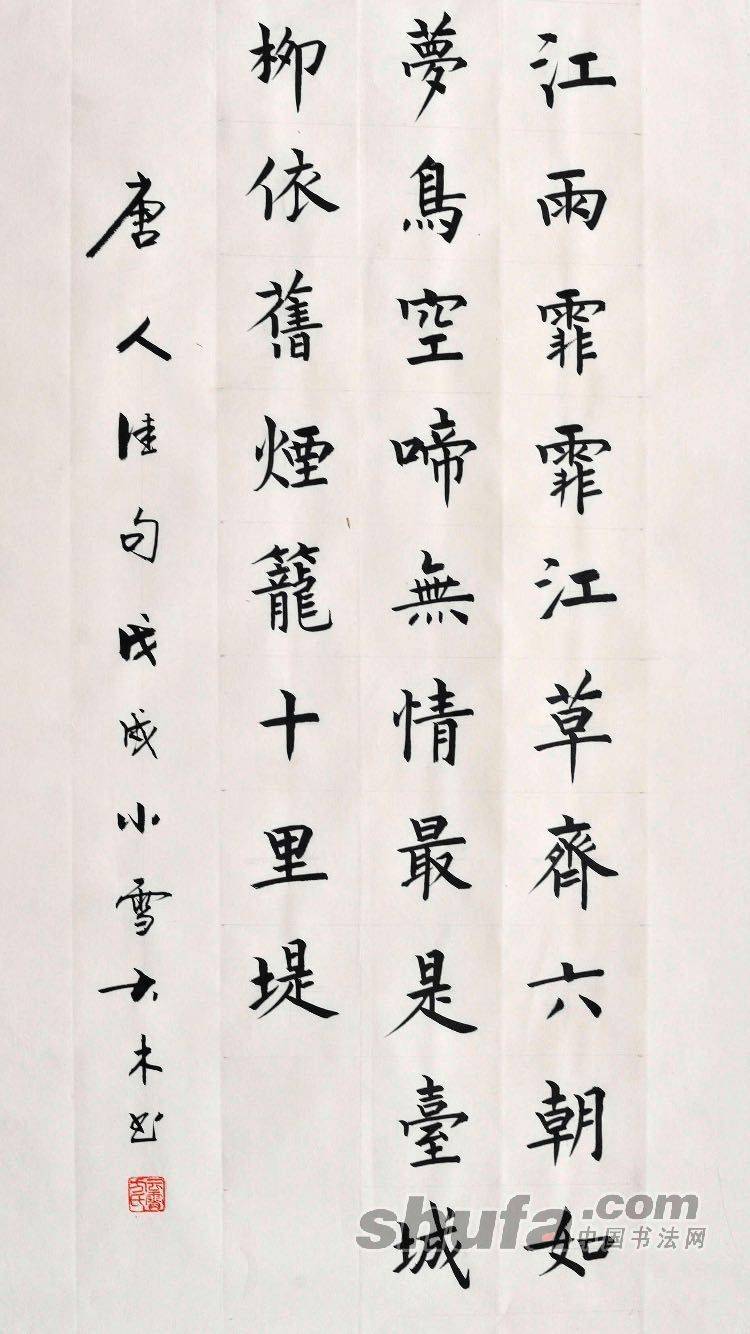 江雨霏霏江草齊六朝如
夢鳥空啼無情最是臺城
柳依舊煙籠十里堤
唐人佳句戊戌小雪大木书
shufa.com
中国书法网